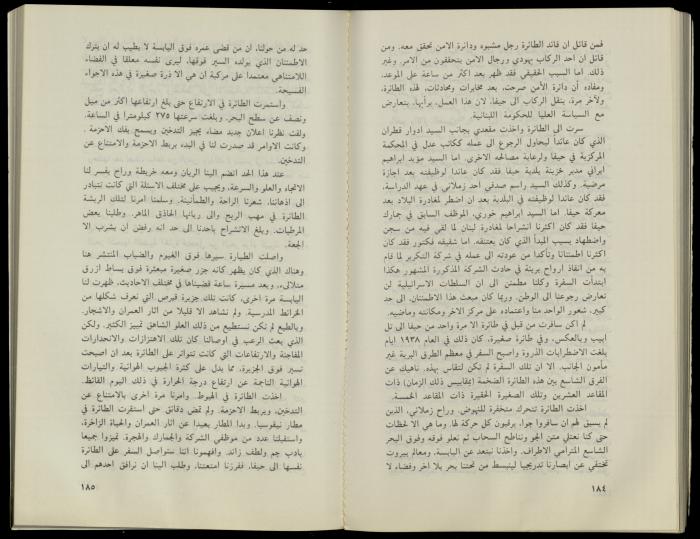 فمن قائل ان قائد الطائرة رجل مشبوه ودائرة الامن تحقق معه. ومن
قائل ان احد الركاب يهودي ورجال الامن يتحققون من الامر. وغير
ذلك. اما السبب الحقيقي فقد ظهر بعد اكثر من ساعة على الموعد.
ومفاده أن دائرة الأمن صرحت، بعد مخابرات ومحادثات، لهذه الطائرة،
ولآخر مرة، بنقل الركاب الى حيفا. لان هذا العمل، برأيها، يتعارض
مع السياسة العليا للحكومة اللبنانية.
سرت الى الطائرة واخذت مقعدي بجانب السيد ادوار قطران
الذي كان عائداً ليحاول الرجوع الى عمله ككاتب عدل في المحكمة
المركزية في حيفا ولرعاية مصالحه الاخرى. اما السيد مؤيد ابراهيم
ايراني مدير خزينة بلدية حيفا فقد كان عائدا لوظيفته بعد اجازة
مرضية. وكذلك السيد راسم صدقي احد زملائي في عهد الدراسة،
فقد كان عائدا لوظيفته في البلدية بعد ان اضطر لمغادرة البلاد بعد
معركة حيفا. اما السيد ابراهيم خوري، الموظف السابق في جمارك
حيفا فقد كان اكثرنا انشراحا لمغادرة لبنان لما لقي فيه من سجن
واضطهاد بسبب المبدأ الذي كان يعتنقه. اما شقيقه فكتور فقد كان
اكثرنا اطمئنانا وتأكدا من عودته الى عمله في شركة التكرير لما قام
به من انقاذ ارواح بريئة في حادث الشركة المذكورة المشهور هكذا
ابتدأت السفرة وكلنا مطمئن الى ان السلطات الاسرائيلية لن
تعارض رجوعنا الى الوطن. وربما كان مبعث هذا الاطمئنان، الى حد
كبير، شعور الواحد منا واعتماده على مركز الاخر ومكانته وماضيه.
لم اكن سافرت من قبل في طائرة الا مرة واحد من حيفا الى تل
ابيب وبالعكس، وفي طائرة صغيرة، كان ذلك في العام ١٩٣٨ ايام
بلغت الاضطرابات الذروة واصبح السفر في معظم الطرق البرية غير
مأمون الجانب. الا ان تلك السفرة لم تكن لتقاس بهذه. ناهيك عن
الفرق الشاسع بين هذه الطائرة الضخمة (بمقاييس ذلك الزمان) ذات
المقاعد العشرين وتلك الصغيرة الحقيرة ذات المقاعد الخمسة.
اخذت الطائرة تتحرك متحفزة للنهوض. وراح زملائي، الذين
لم يسبق لهم ان سافروا جوا، يرقبون كل حركة لها. وما هي الا لحظات
حتى كنا نعتلي متن الجو ونناطح السحاب ثم نعلو فوقه وفوق البحر
الشاسع المترامي الاطراف. واخذنا نبتعد عن اليابسة، ومعالم بيروت
تختفي عن ابصارنا تدريجيا لينبسط من تحتنا بحر بلا اخر وفضاء لا
١٨٤
حد له من حولنا. ان من قضى عمره فوق اليابسة لا يطيب له ان يترك
الاطمئنان الذي يولده السير فوقها، ليرى نفسه معلقا في الفضاء
اللامتناهي معتمدا على مركبة ان هي الا ذرة صغيرة في هذه الاجواء
الفسيحة.
واستمرت الطائرة في الارتفاع حتى بلغ ارتفاعها اكثر من ميل
ونصف عن سطح البحر. وبلغت سرعتها ٢٧٥ كيلومترا في الساعة.
ولفت نظرنا اعلان جديد مضاء يجيز التدخين ويسمح بفك الاحزمة.
وكانت الاوامر قد صدرت لنا في البدء بربط الاحزمة والامتناع عن
التدخين.
عند هذا الحد انضم الينا الربان ومعه خريطة وراح يفسر لنا
الاتجاه والعلو والسرعة، ويجيب على مختلف الاسئلة التي كانت تتبادر
الى اذهاننا. شعرنا الراحة والطمأنينة. وسلمنا امرنا لتلك الريشة
الطائرة في مهب الريح والى ربانها الحاذق الماهر. وطلبنا بعض
المرطبات. وبلغ الانشراح باحدنا الى حد انه رفض ان يشرب الا
الجعة.
واصلت الطيارة سيرها فوق الغيوم والضباب المنتشر هنا
وهناك الذي كان يظهر كانه جزر صغيرة مبعثرة فوق بساط ازرق
متلألىء. وبعد مسيرة ساعة قضيناها في مختلف الاحاديث، ظهرت لنا
اليابسة مرة اخرى. كانت تلك جزيرة قبرص التي نعرف شكلها من
الخرائط المدرسية. ولم نشاهد الا قليلا من آثار العمران والاشجار.
وبالطبع لم نكن نستطيع من ذلك العلو الشاهق تمييز الكثير. ولكن
الذي بعث الرعب في اوصالنا كان تلك الاهتزازات والانحدارات
المفاجئة والارتفاعات التي كانت تتواتر على الطائرة بعد ان اصبحت
تسير فوق الجزيرة، مما يدل على كثرة الجيوب الهوائية والتيارات
الهوائية الناجمة عن ارتفاع درجة الحرارة في ذلك اليوم القائظ.
اخذت الطائرة في الهبوط. وامرنا مرة اخرى بالامتناع عن
التدخين، وبربط الاحزمة. ولم تمض دقائق حتى استقرت الطائرة في
مطار نيقوسيا. وبدا المطار بعيدا عن آثار العمران والحياة الزاخرة.
واستقبلنا عدد من موظفي الشركة والجمارك والهجرة. تميزوا جميعا
بادب جم ولطف زائد. وافهمونا اننا سنواصل السفر على الطائرة
نفسها الى حيفا، ففرزنا امتعتنا، وطلب الينا ان نرافق احدهم الى
١٨٥